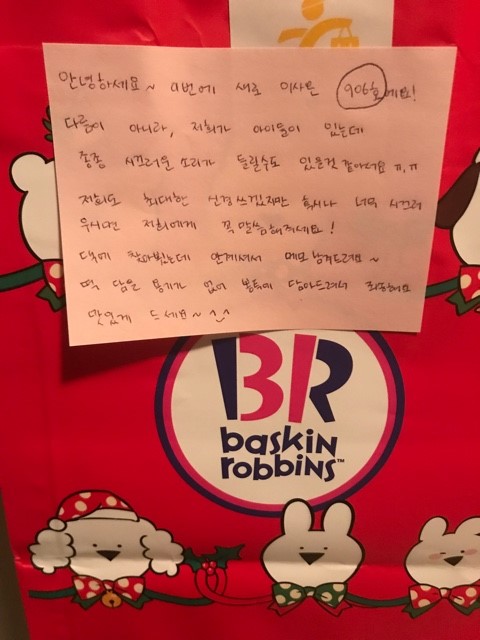 안녕하세요~ 이번에 새로 이사온 906호예요!
다름이 아니라, 저희가 아이들이 있는데
종종 시끄러운 소리가 들릴수도 있을것 같아서요 ㅠ,ㅠ
저희도 최대한 신경쓰겠지만 혹시나 너무 시끄러
우시면 저희에게 꼭 말씀해주세요!
댁에 찾아뵀는데 안계셔서 메모 남겨드려요~
떡 담을 용기가 없어 봉투에 담아드려서 죄송해요
맛있게 드세요~ ^^
BR
baskin
robbins™